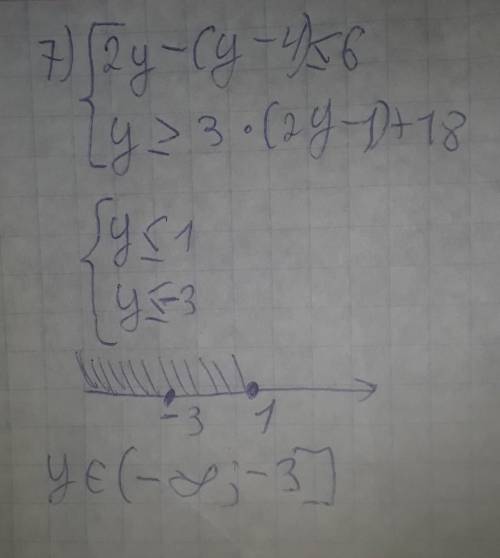 7) { 2y-(y-4)≤6
y ≥ 3·(2y-1)+18
{ y ≤ 1
y ≤ -3
-3 1
y ∈ (-∞; -3]